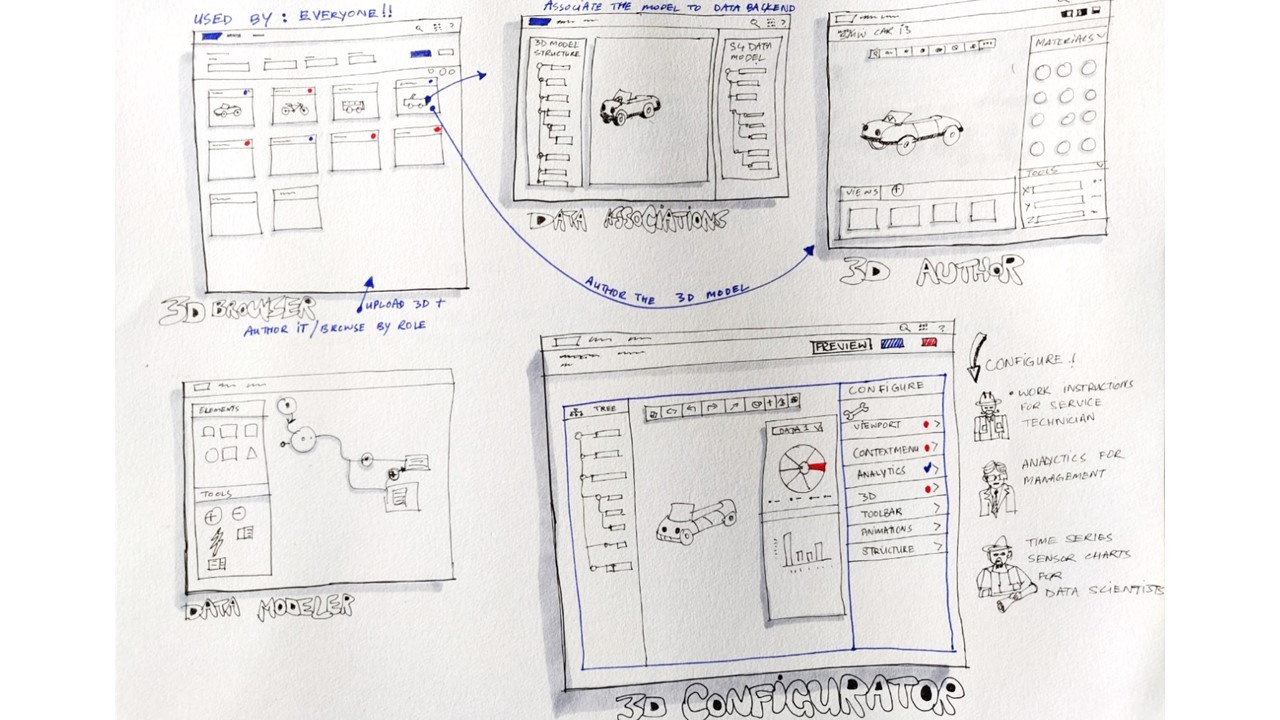 USED BY : EVERYONE!!
?
3D BROWSER
UPLOAD 3D +
AUTHOR IT / BROWSE BY ROLE
ASSOCIATE THE MODEL TO DATA BACKEND
?
3D MODEL
STRUCTURE
S4 DATA
MODEL
DATA ASSOCIATIONS
AUTHOR THE 3D MODEL
BMW CAR i3
MATERIALS
VIEWS +
TOOLS
X
Y
Z
3D AUTHOR
ELEMENTS
TOOLS
DATA MODELER
?
PREVIEW
TREE
DATA 1
CONFIGURE
VIEWPORT
CONTEXTMENU
ANALYTICS
3D
TOOLBAR
ANIMATIONS
STRUCTURE
3D CONFIGURATOR
CONFIGURE !
• WORK INSTRUCTIONS
FOR SERVICE
TECHNICIAN
ANALYCTICS FOR
MANAGEMENT
TIME SERIES
SENSOR CHARTS
FOR
DATA SCIENTISTS